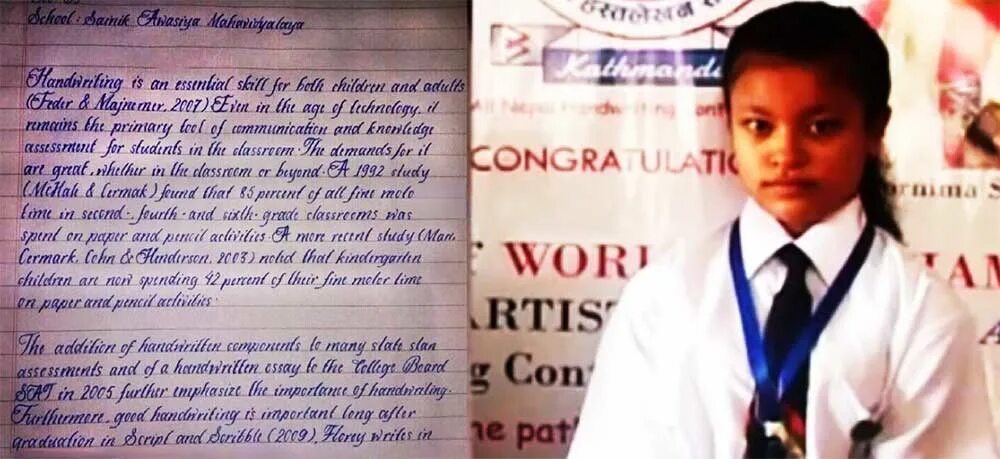 School : Sainik Awasiya Mahavidyalaya
Handwriting is an essential skill for both children and adults
(Feder & Majnemer, 2007) Even in the age of technology, it
remains the primary tool of communication and knowledge
assessment for students in the classroom. The demands for it
are great, whether in the classroom or beyond. A 1992 study
(McHale & Cermak) found that 85 percent of all fine moto
time in second-, fourth- and sixth- grade classrooms was
spent on paper and pencil activities. A more recent study (Marr,
Cermark, Cohn & Henderson, 2003) noted that kindergarten
children are now spending 42 percent of their fine moter time
on paper and pencil activities.
The addition of handwritten components to many state stan
assessments and of a handwritten essay to the College Board
SAT in 2005 further emphasize the importance of handwriting.
Furthermore, good handwriting is important long after
graduation in Script and Scribble (2009), Florey writes in
हस्तलेखन
Kathmand
All Nepal Handwriting Cont
CONGRATULATIO
rnima S
WORL IAM
ARTIS A
g Con
he pat